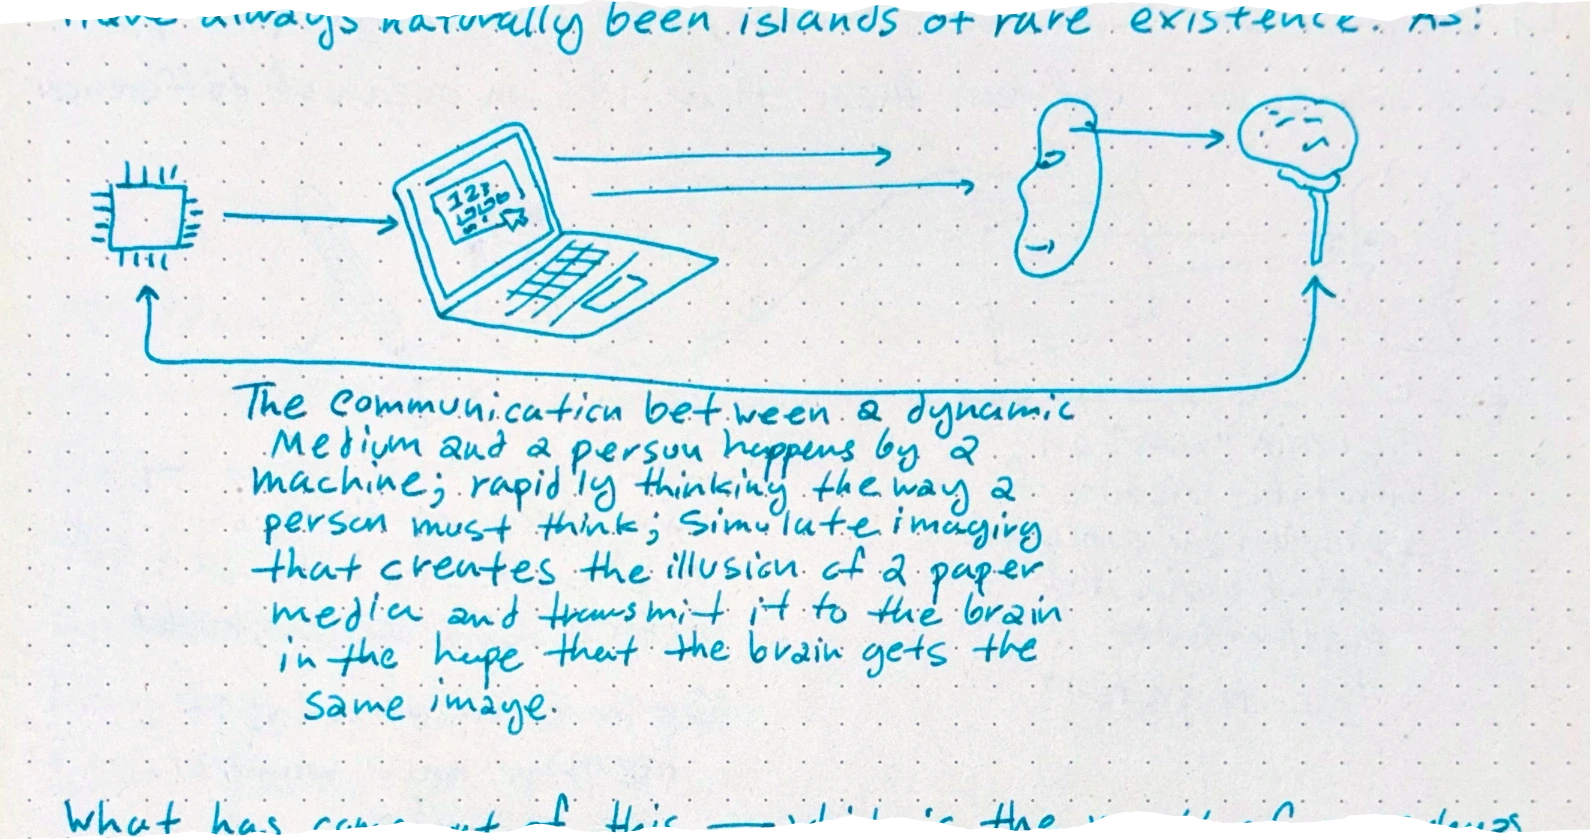 have always naturally been islands of rare existence. As:
123
The communication between a dynamic
medium and a person happens by a
machine; rapidly thinking the way a
person must think; simulate imaging
that creates the illusion of a paper
media and transmit it to the brain
in the hope that the brain gets the
same image.
What has come out of this — which is the